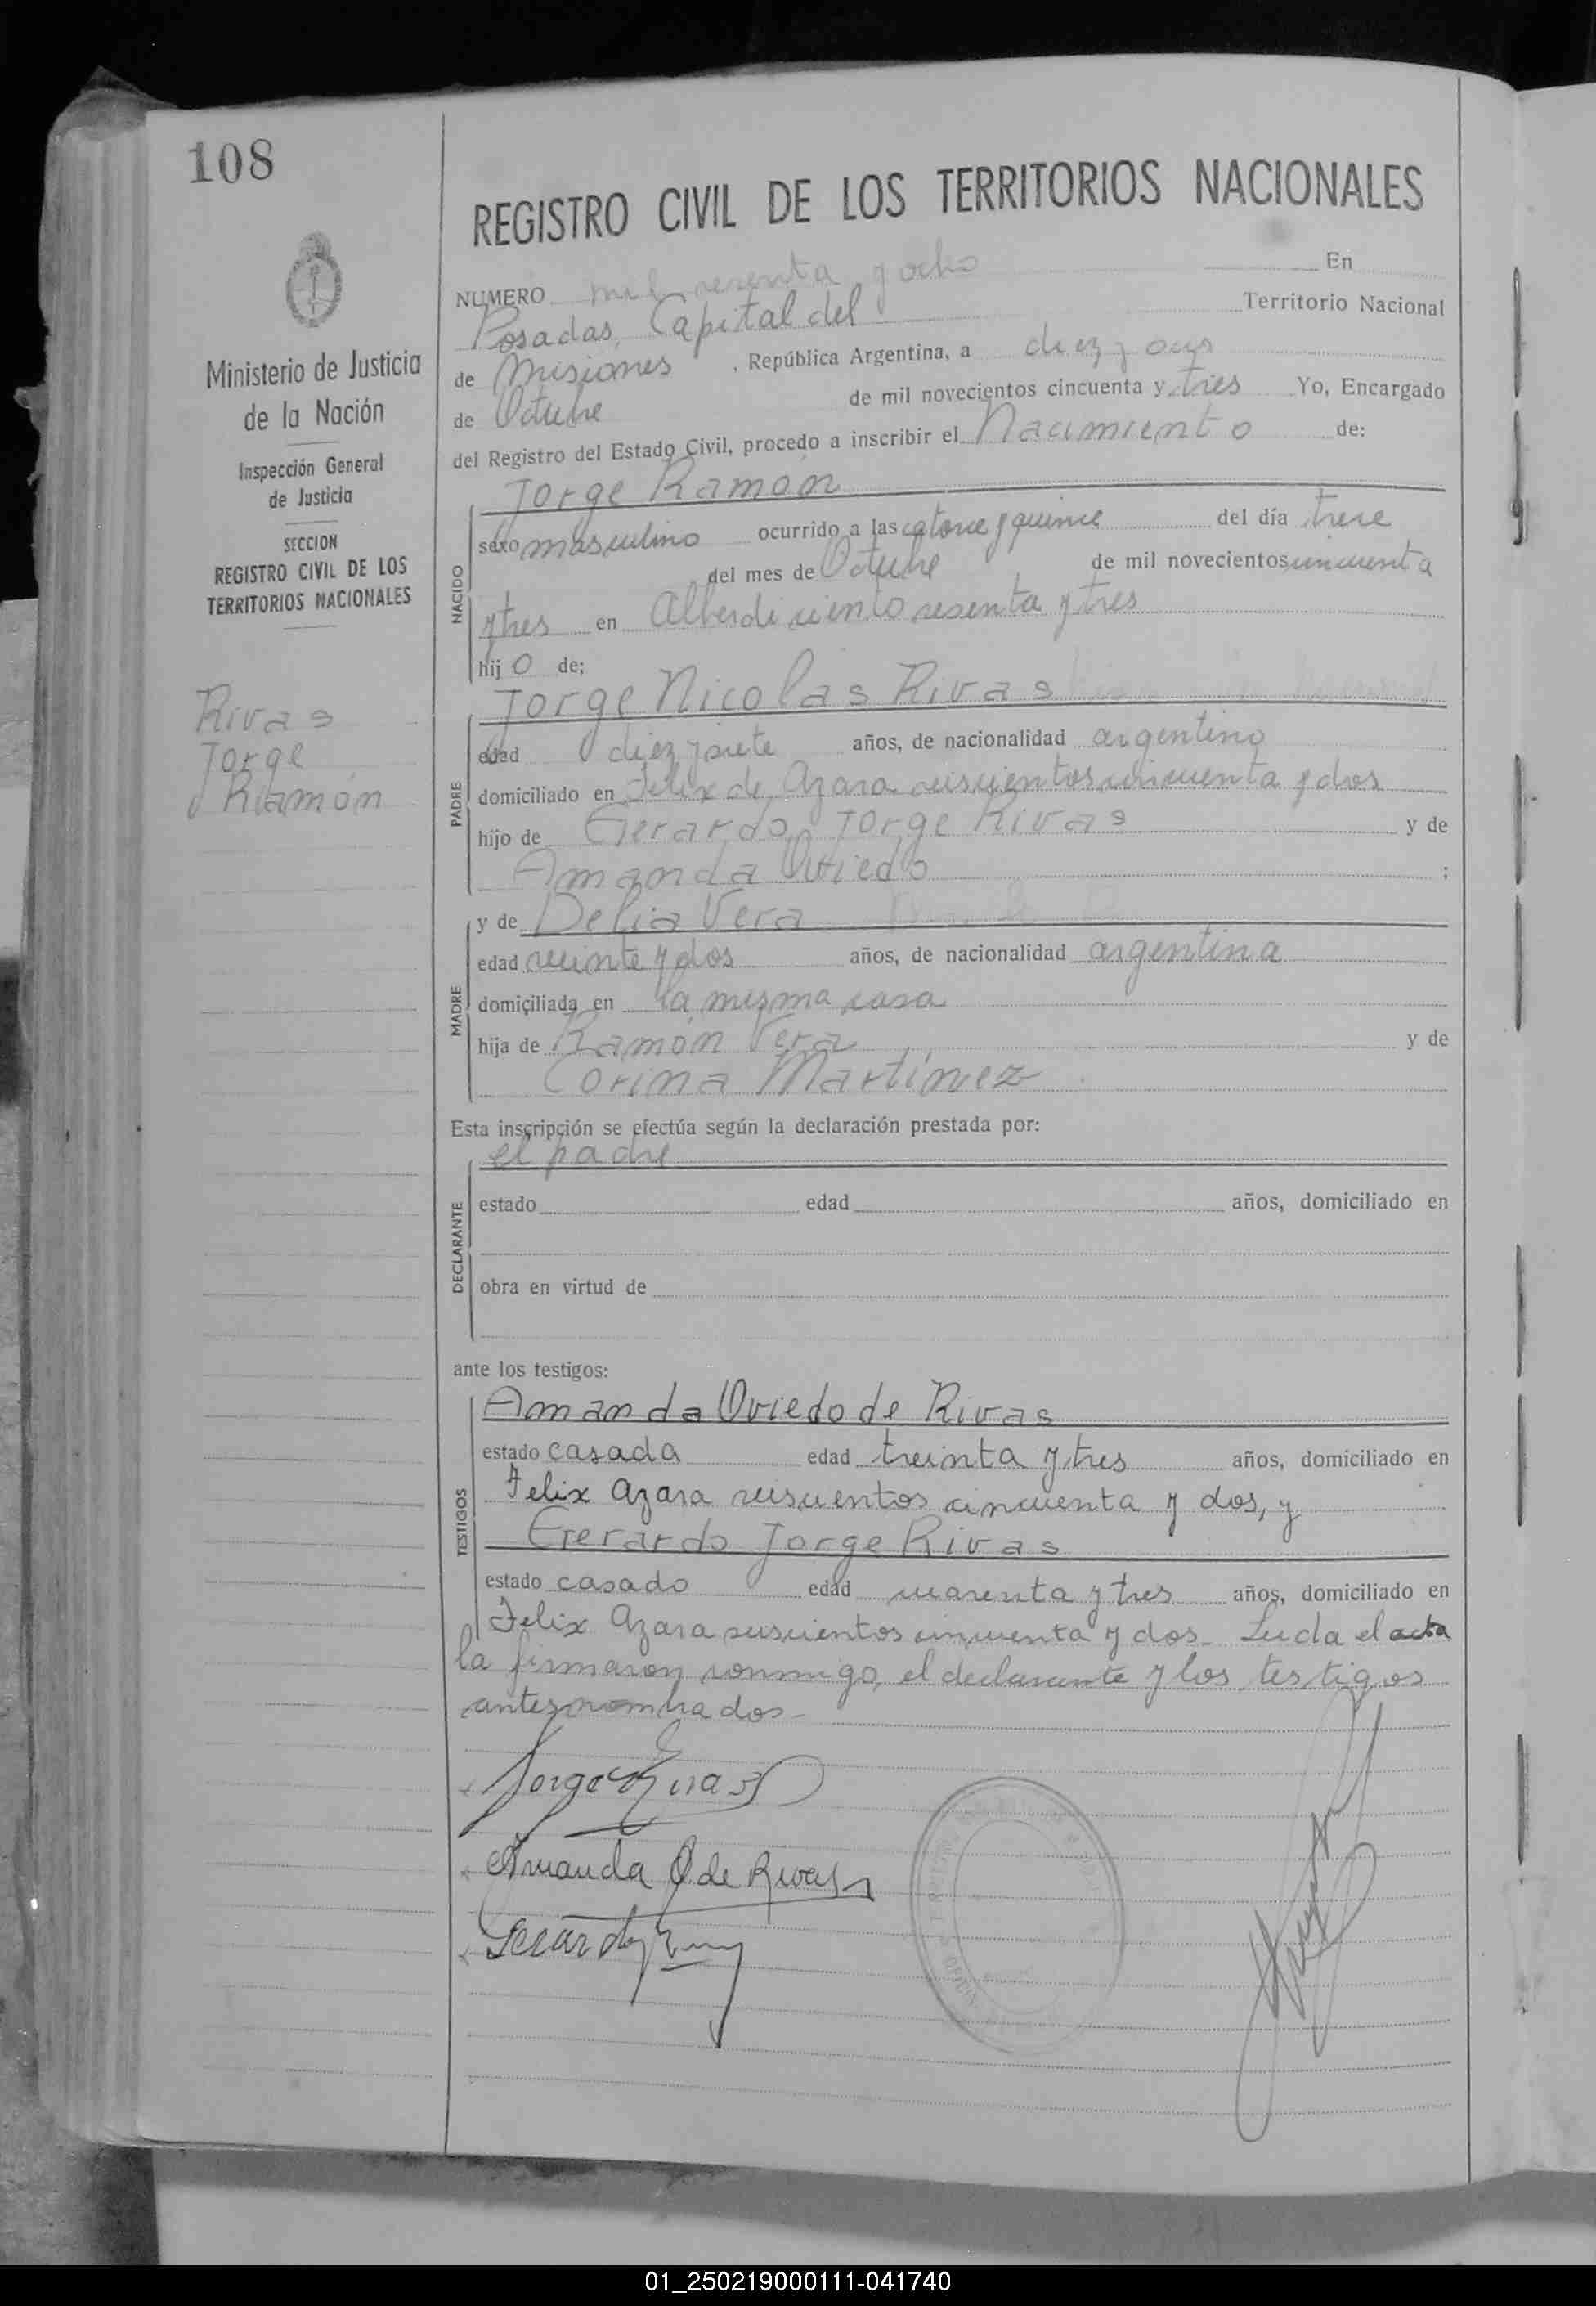 108
REGISTRO CIVIL DE LOS TERRITORIOS NACIONALES
Ministerio de Justicia
de la Nación
Inspección General
de Justicia
SECCION
REGISTRO CIVIL DE LOS
TERRITORIOS NACIONALES
Rivas
Jorge
Ramón
NUMERO mil sesenta y ocho En
Posadas, Capital del Territorio Nacional
de Misiones, República Argentina, a diez y seis
de Octubre de mil novecientos cincuenta y tres Yo, Encargado
del Registro del Estado Civil, procedo a inscribir el Nacimiento de:
Jorge Ramón
NACIDO
sexo masculino ocurrido a las catorce y quince del día trece
del mes de Octubre de mil novecientos cincuenta
y tres en Alberdi ciento sesenta y tres
hijo de:
Jorge Nicolas Rivas
PADRE
edad diez y siete años, de nacionalidad argentino
domiciliado en Felix de Azara seiscientos cincuenta y dos
hijo de Gerardo Jorge Rivas y de
Amanda Oviedo ;
y de Delia Vera
MADRE
edad veinte y dos años, de nacionalidad argentina
domiciliada en la misma casa
hija de Ramón Vera y de
Corina Martínez
Esta inscripción se efectúa según la declaración prestada por:
el padre
DECLARANTE
estado edad años, domiciliado en
obra en virtud de
ante los testigos:
Amanda Oviedo de Rivas
TESTIGOS
estado casada edad treinta y tres años, domiciliado en
Felix Azara seiscientos cincuenta y dos, y
Gerardo Jorge Rivas
estado casado edad cuarenta y tres años, domiciliado en
Felix Azara seiscientos cincuenta y dos_ Leida el acta
la firmaron conmigo, el declarante y los testigos
antes nombrados_
Jorge Rivas
Amanda O de Rivas
Gerardo
01_250219000111-041740